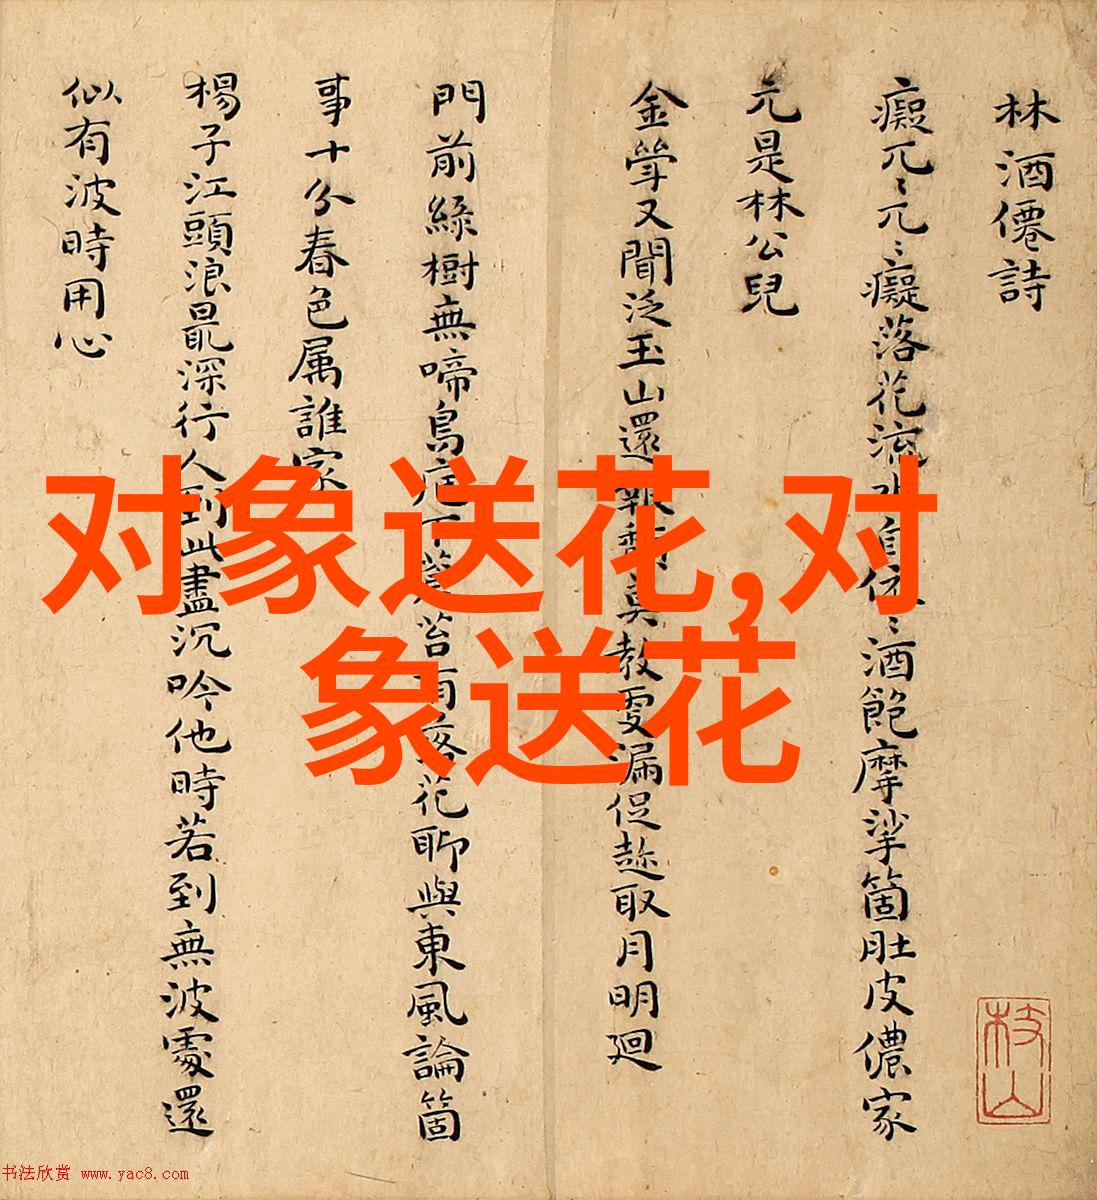 林酒僊詩
癡兀〻兀〻癡落花流水自依〻酒飽摩挲箇肚皮儂家
元是林公兒
金斝又聞泛玉山還報頹莫教更漏促趂取月明廻
門前綠樹無啼鳥庭下蒼苔有落花聊與東風論箇
事十分春色属誰家
楊子江頭浪最深行人到此盡沉吟他時若到無波處還
似有波時用心
枝山
对象送花,对
象送花
书法欣赏 www.yac8.com